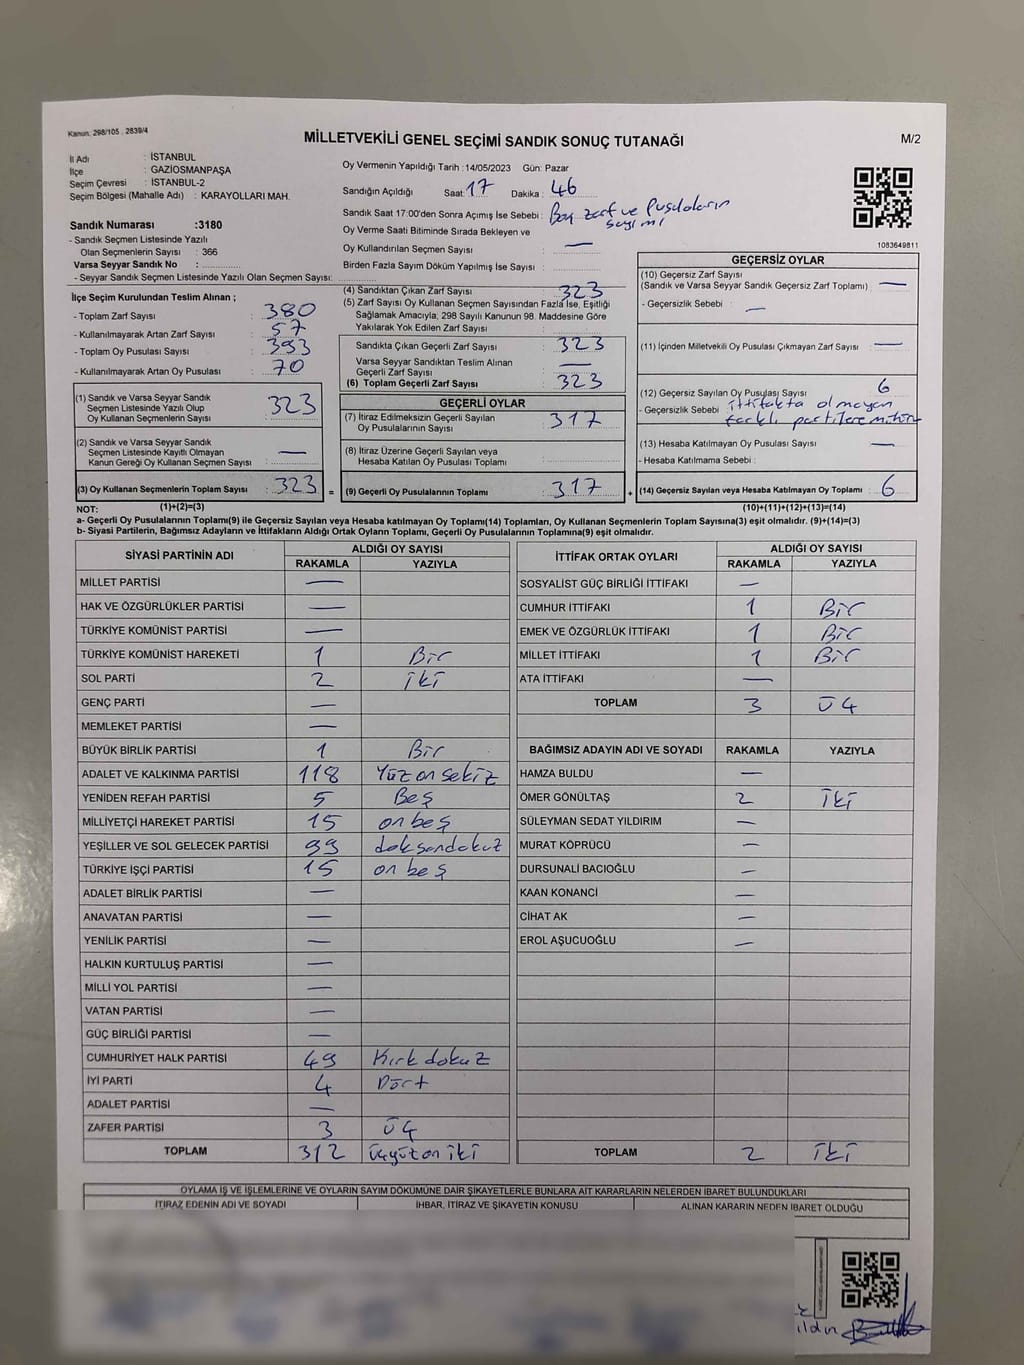 Kanun, 298/105 , 2839/4
MİLLETVEKİLİ GENEL SEÇİMİ SANDIK SONUÇ TUTANAĞI
M/2
İl Adı : İSTANBUL
İlçe : GAZİOSMANPAŞA
Seçim Çevresi : İSTANBUL-2
Seçim Bölgesi (Mahalle Adı) : KARAYOLLARI MAH.
Sandık Numarası :3180
- Sandık Seçmen Listesinde Yazılı
Olan Seçmenlerin Sayısı : 366
Varsa Seyyar Sandık No :
- Seyyar Sandık Seçmen Listesinde Yazılı Olan Seçmen Sayısı:
Oy Vermenin Yapıldığı Tarih :14/05/2023 Gün: Pazar
Sandığın Açıldığı Saat: 17 Dakika : 46
Sandık Saat 17:00'den Sonra Açımış İse Sebebi : Boş zarf ve Pusulaların
sayımı
Oy Verme Saati Bitiminde Sırada Bekleyen ve
Oy Kullandırılan Seçmen Sayısı : —
Birden Fazla Sayım Döküm Yapılmış İse Sayısı :
1083649811
İlçe Seçim Kurulundan Teslim Alınan ;
- Toplam Zarf Sayısı : 380
- Kullanılmayarak Artan Zarf Sayısı : 57
- Toplam Oy Pusulası Sayısı : 393
- Kullanılmayarak Artan Oy Pusulası : 70
(1) Sandık ve Varsa Seyyar Sandık
Seçmen Listesinde Yazılı Olup
Oy Kullanan Seçmenlerin Sayısı : 323
(2) Sandık ve Varsa Seyyar Sandık
Seçmen Listesinde Kayıtlı Olmayan
Kanun Gereği Oy Kullanan Seçmen Sayısı : —
(3) Oy Kullanan Seçmenlerin Toplam Sayısı : 323
(1)+(2)=(3)
(4) Sandıktan Çıkan Zarf Sayısı : 323
(5) Zarf Sayısı Oy Kullanan Seçmen Sayısından Fazla İse, Eşitliği
Sağlamak Amacıyla; 298 Sayılı Kanunun 98. Maddesine Göre
Yakılarak Yok Edilen Zarf Sayısı :
Sandıkta Çıkan Geçerli Zarf Sayısı : 323
Varsa Seyyar Sandıktan Teslim Alınan
Geçerli Zarf Sayısı : —
(6) Toplam Geçerli Zarf Sayısı : 323
GEÇERLİ OYLAR
(7) İtiraz Edilmeksizin Geçerli Sayılan
Oy Pusulalarının Sayısı : 317
(8) İtiraz Üzerine Geçerli Sayılan veya
Hesaba Katılan Oy Pusulası Toplamı :
= (9) Geçerli Oy Pusulalarının Toplamı : 317 +
GEÇERSİZ OYLAR
(10) Geçersiz Zarf Sayısı
(Sandık ve Varsa Seyyar Sandık Geçersiz Zarf Toplamı) : —
- Geçersizlik Sebebi : —
(11) İçinden Milletvekili Oy Pusulası Çıkmayan Zarf Sayısı : —
(12) Geçersiz Sayılan Oy Pusulası Sayısı : 6
- Geçersizlik Sebebi : ittifakta olmayan
farklı partilere mühür
(13) Hesaba Katılmayan Oy Pusulası Sayısı : —
- Hesaba Katılmama Sebebi :
(14) Geçersiz Sayılan veya Hesaba Katılmayan Oy Toplamı : 6
(10)+(11)+(12)+(13)=(14)
NOT:
a- Geçerli Oy Pusulalarının Toplamı(9) ile Geçersiz Sayılan veya Hesaba katılmayan Oy Toplamı(14) Toplamları, Oy Kullanan Seçmenlerin Toplam Sayısına(3) eşit olmalıdır. (9)+(14)=(3)
b- Siyasi Partilerin, Bağımsız Adayların ve İttifakların Aldığı Ortak Oyların Toplamı, Geçerli Oy Pusulalarının Toplamına(9) eşit olmalıdır.
SİYASİ PARTİNİN ADI ALDIĞI OY SAYISI
RAKAMLA YAZIYLA
MİLLET PARTİSİ —
HAK VE ÖZGÜRLÜKLER PARTİSİ —
TÜRKİYE KOMÜNİST PARTİSİ —
TÜRKİYE KOMÜNİST HAREKETİ 1 Bir
SOL PARTİ 2 iki
GENÇ PARTİ —
MEMLEKET PARTİSİ —
BÜYÜK BİRLİK PARTİSİ 1 Bir
ADALET VE KALKINMA PARTİSİ 118 Yüz on sekiz
YENİDEN REFAH PARTİSİ 5 Beş
MİLLİYETÇİ HAREKET PARTİSİ 15 on beş
YEŞİLLER VE SOL GELECEK PARTİSİ 99 doksandokuz
TÜRKİYE İŞÇİ PARTİSİ 15 on beş
ADALET BİRLİK PARTİSİ —
ANAVATAN PARTİSİ —
YENİLİK PARTİSİ —
HALKIN KURTULUŞ PARTİSİ —
MİLLİ YOL PARTİSİ —
VATAN PARTİSİ —
GÜÇ BİRLİĞİ PARTİSİ —
CUMHURİYET HALK PARTİSİ 49 Kırk dokuz
İYİ PARTİ 4 Dört
ADALET PARTİSİ —
ZAFER PARTİSİ 3 Üç
TOPLAM 312 Üçyüz on iki
İTTİFAK ORTAK OYLARI ALDIĞI OY SAYISI
RAKAMLA YAZIYLA
SOSYALİST GÜÇ BİRLİĞİ İTTİFAKI —
CUMHUR İTTİFAKI 1 Bir
EMEK VE ÖZGÜRLÜK İTTİFAKI 1 Bir
MİLLET İTTİFAKI 1 Bir
ATA İTTİFAKI —
TOPLAM 3 Üç
BAĞIMSIZ ADAYIN ADI VE SOYADI RAKAMLA YAZIYLA
HAMZA BULDU —
ÖMER GÖNÜLTAŞ 2 İki
SÜLEYMAN SEDAT YILDIRIM —
MURAT KÖPRÜCÜ —
DURSUNALİ BACIOĞLU —
KAAN KONANCİ —
CİHAT AK —
EROL AŞUCUOĞLU —
TOPLAM 2 İki
OYLAMA İŞ VE İŞLEMLERİNE VE OYLARIN SAYIM DÖKÜMÜNE DAİR ŞİKAYETLERLE BUNLARA AİT KARARLARIN NELERDEN İBARET BULUNDUKLARI
İTİRAZ EDENİN ADI VE SOYADI İHBAR, İTİRAZ VE ŞİKAYETİN KONUSU ALINAN KARARIN NEDEN İBARET OLDUĞU